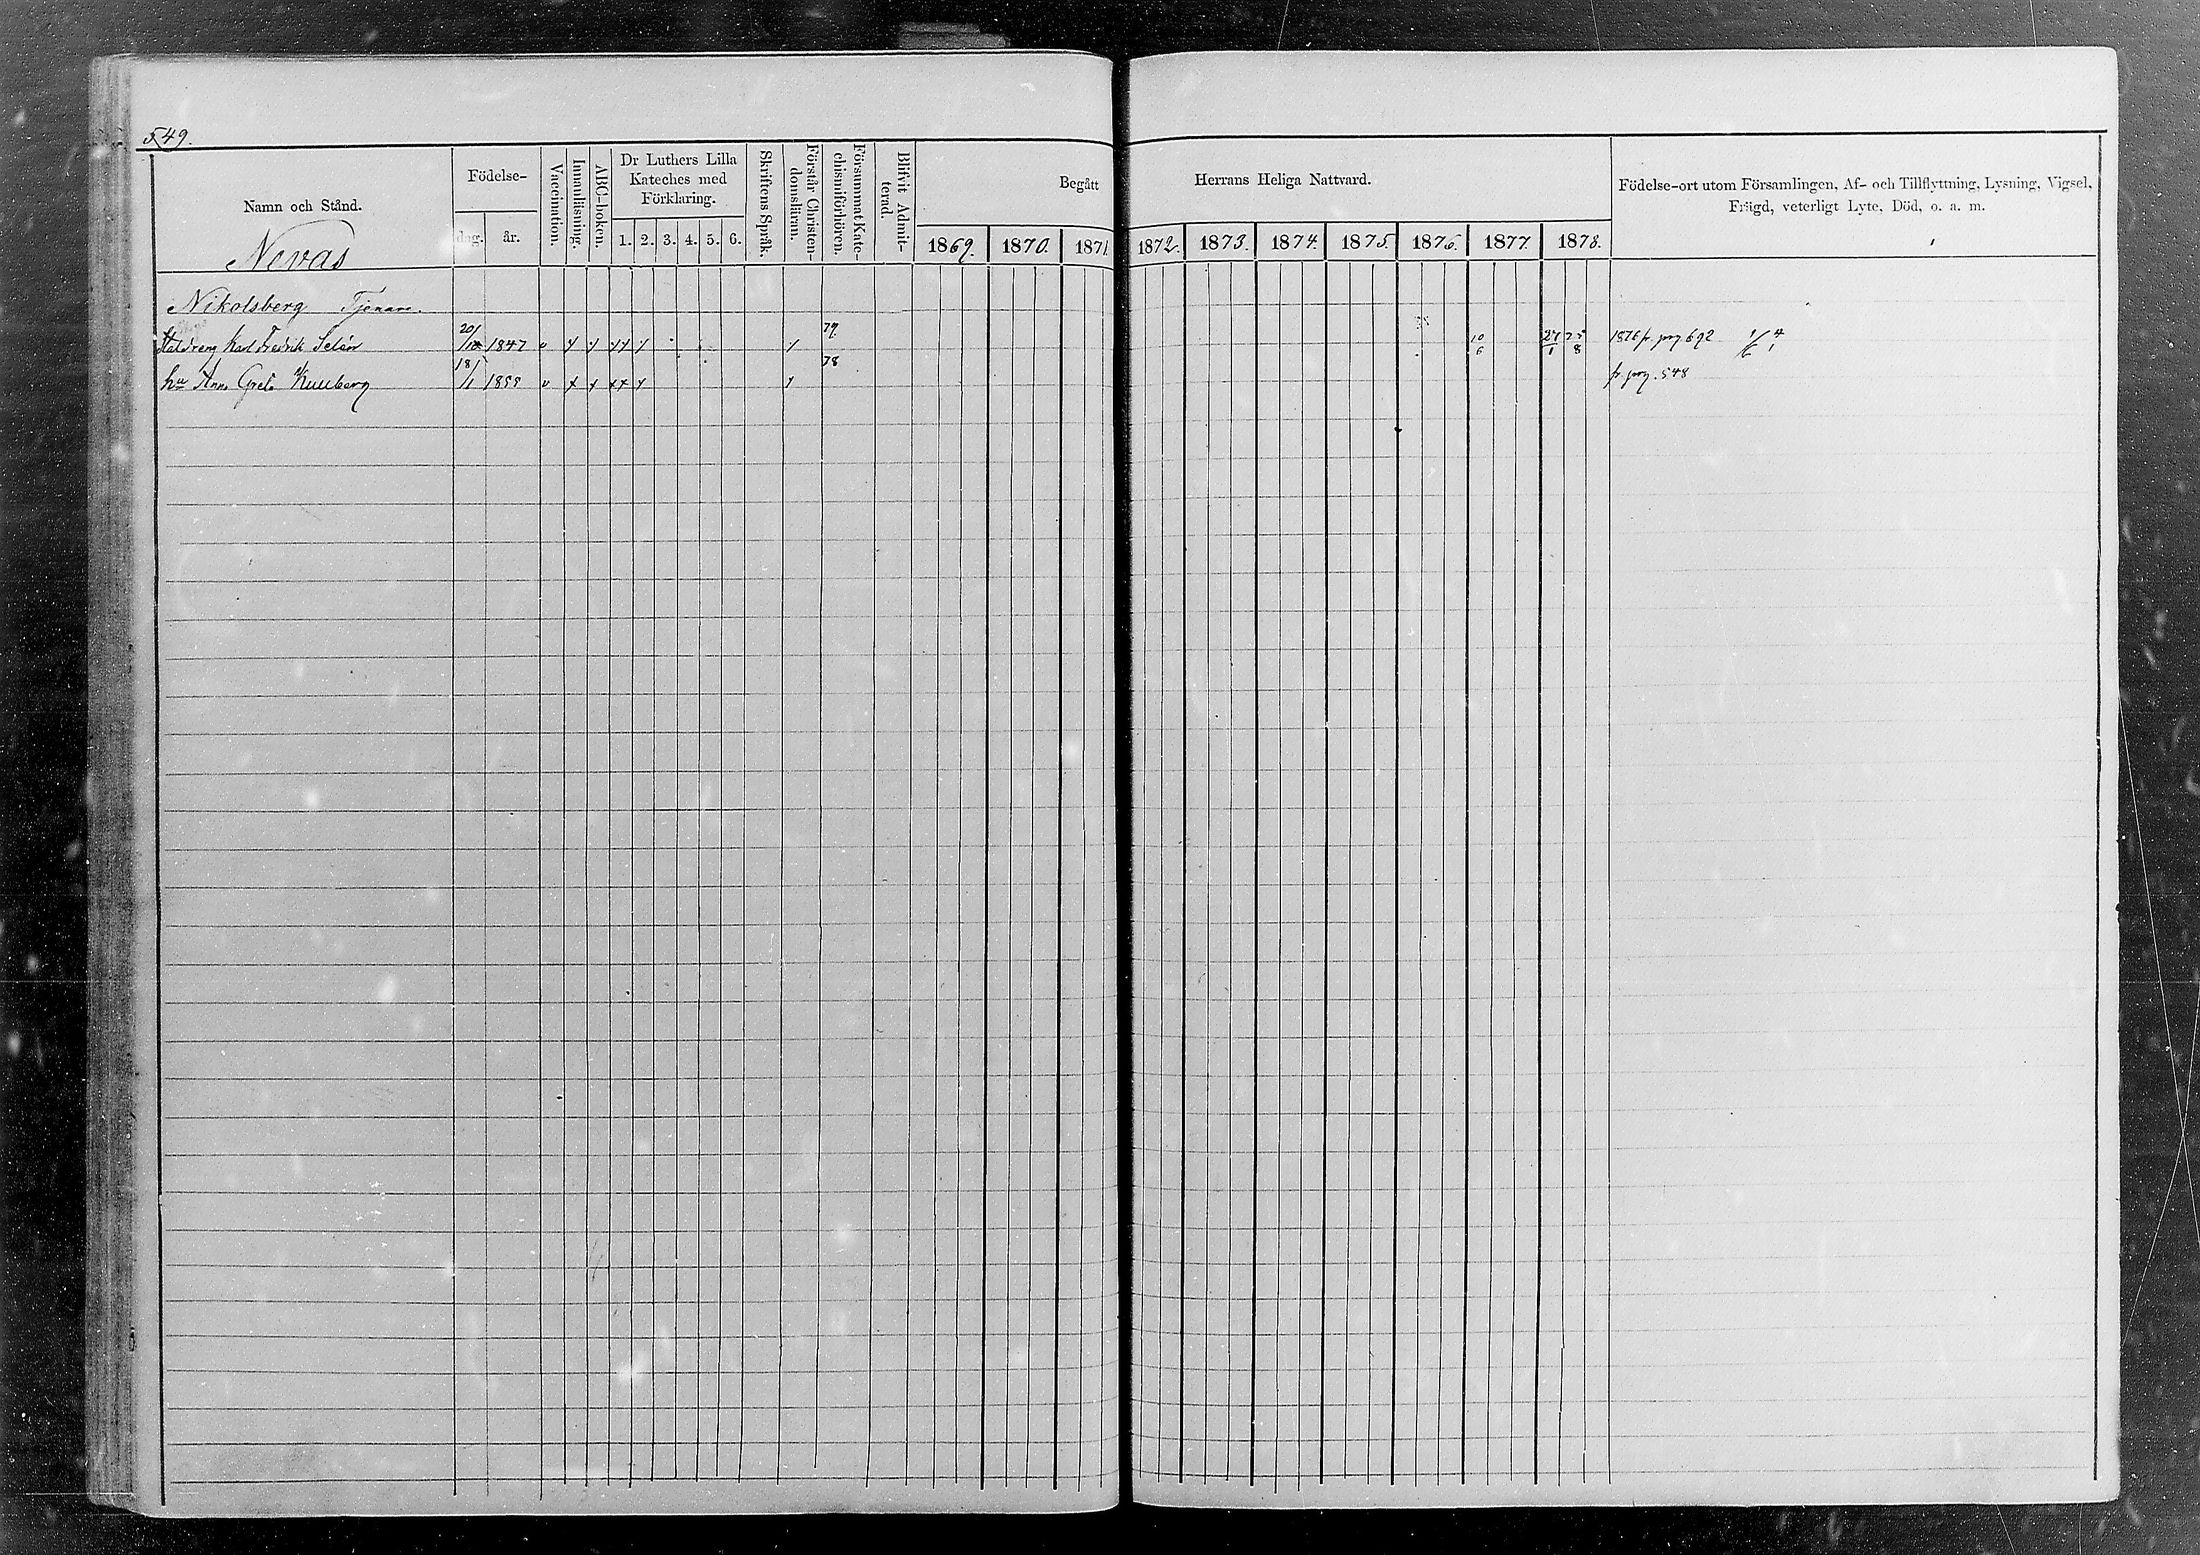 549.
Namn och Stånd.
Nevas
Födelse-
dag. år.
Vaccination.
Innanläsning.
ABC-boken.
Dr Luthers Lilla
Kateches med
Förklaring.
1. 2. 3. 4. 5. 6.
Skriftens Språk.
Förstår Christen-
domsläran.
Försummat Kate-
chismiförhören.
Blifvit Admit-
terad.
Begått Herrans Heliga Nattvard.
1869. 1870. 1871. 1872. 1873. 1874. 1875. 1876. 1877. 1878.
Födelse-ort utom Församlingen, Af- och Tillflyttning, Lysning, Vigsel,
Frägd, veterligt Lyte, Död, o. a. m.
Nikolsberg Tjenare.
Karl Fredrik Selén 20/ 1847 v x x x x x x 79 10/6 27/1 25/8 1876 fr. pag 692
hu Anna Greta 18/1 1855 v x x x x x x 78 fr. pag. 548